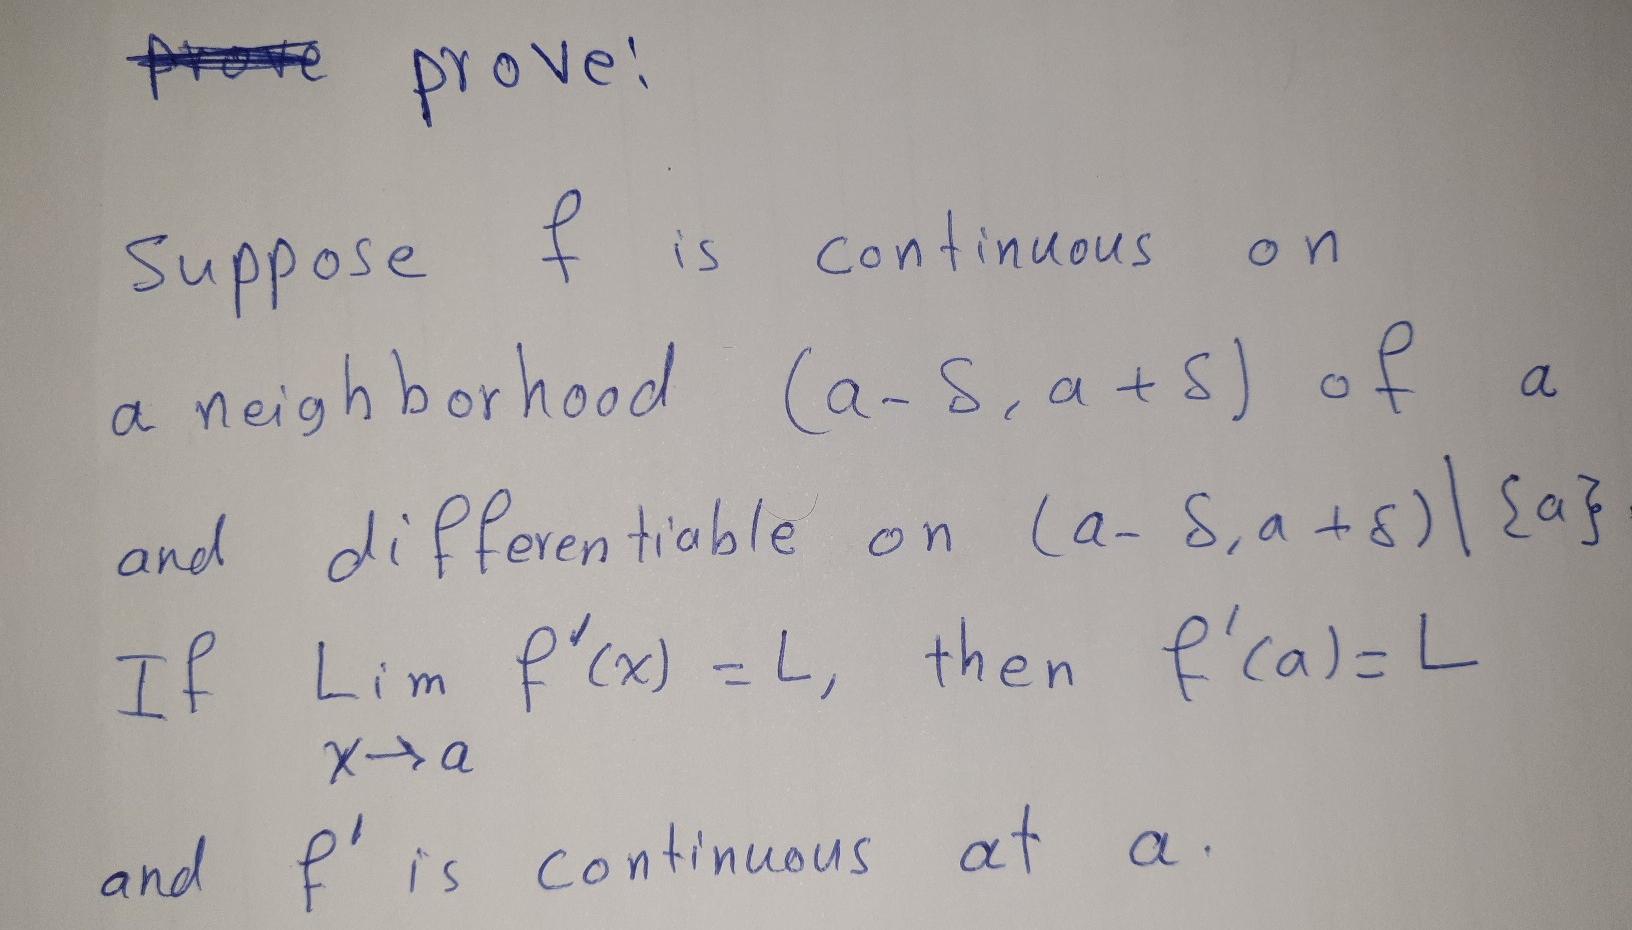 prove prove:
Suppose f is continuous on
a neighborhood (a-δ, a+δ) of a
and differentiable on (a-δ, a+δ)\{a}.
If Lim f'(x) = L, then f'(a) = L
x→a
and f' is continuous at a.